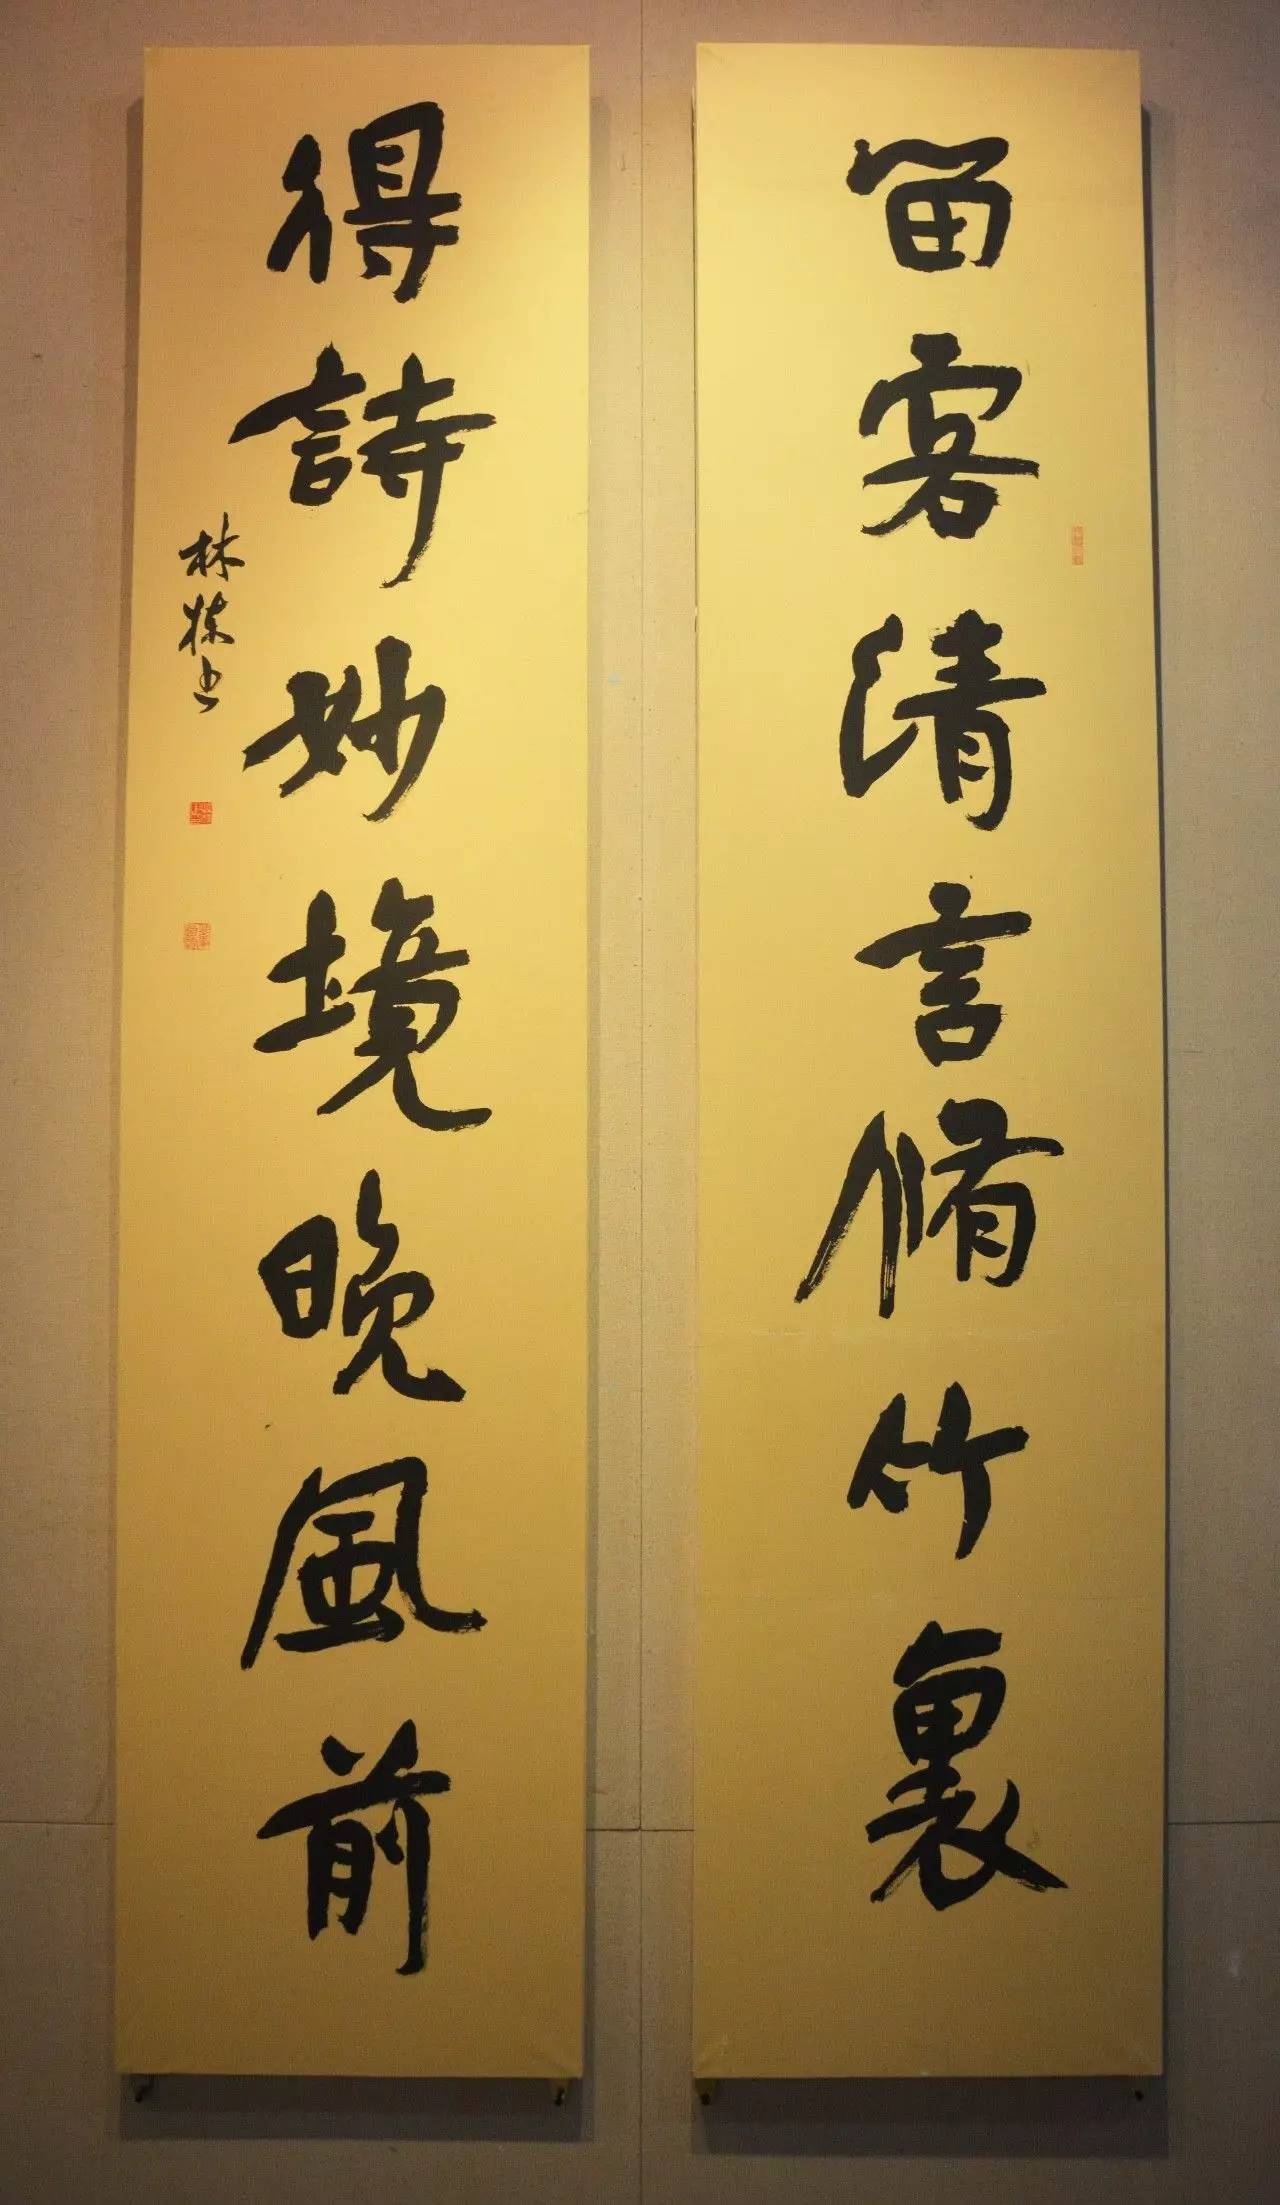 留客清言脩竹裏
得詩妙境晚風前
林棟书